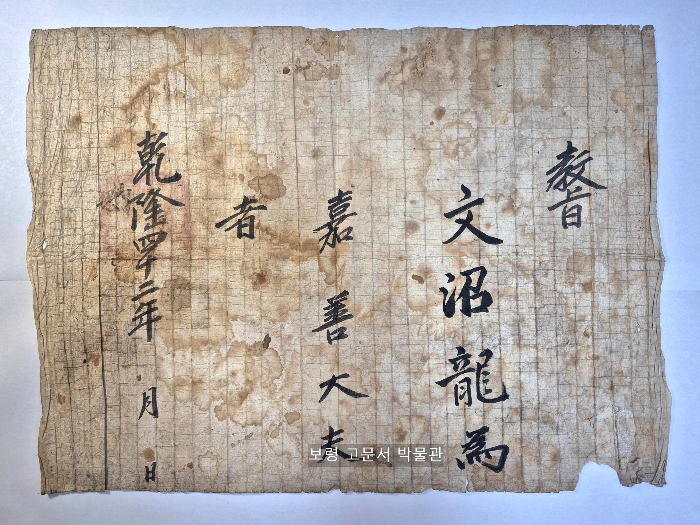 教旨
文沼龍為
嘉善大夫
者
乾隆四十二年 月 日
보령 고문서 박물관